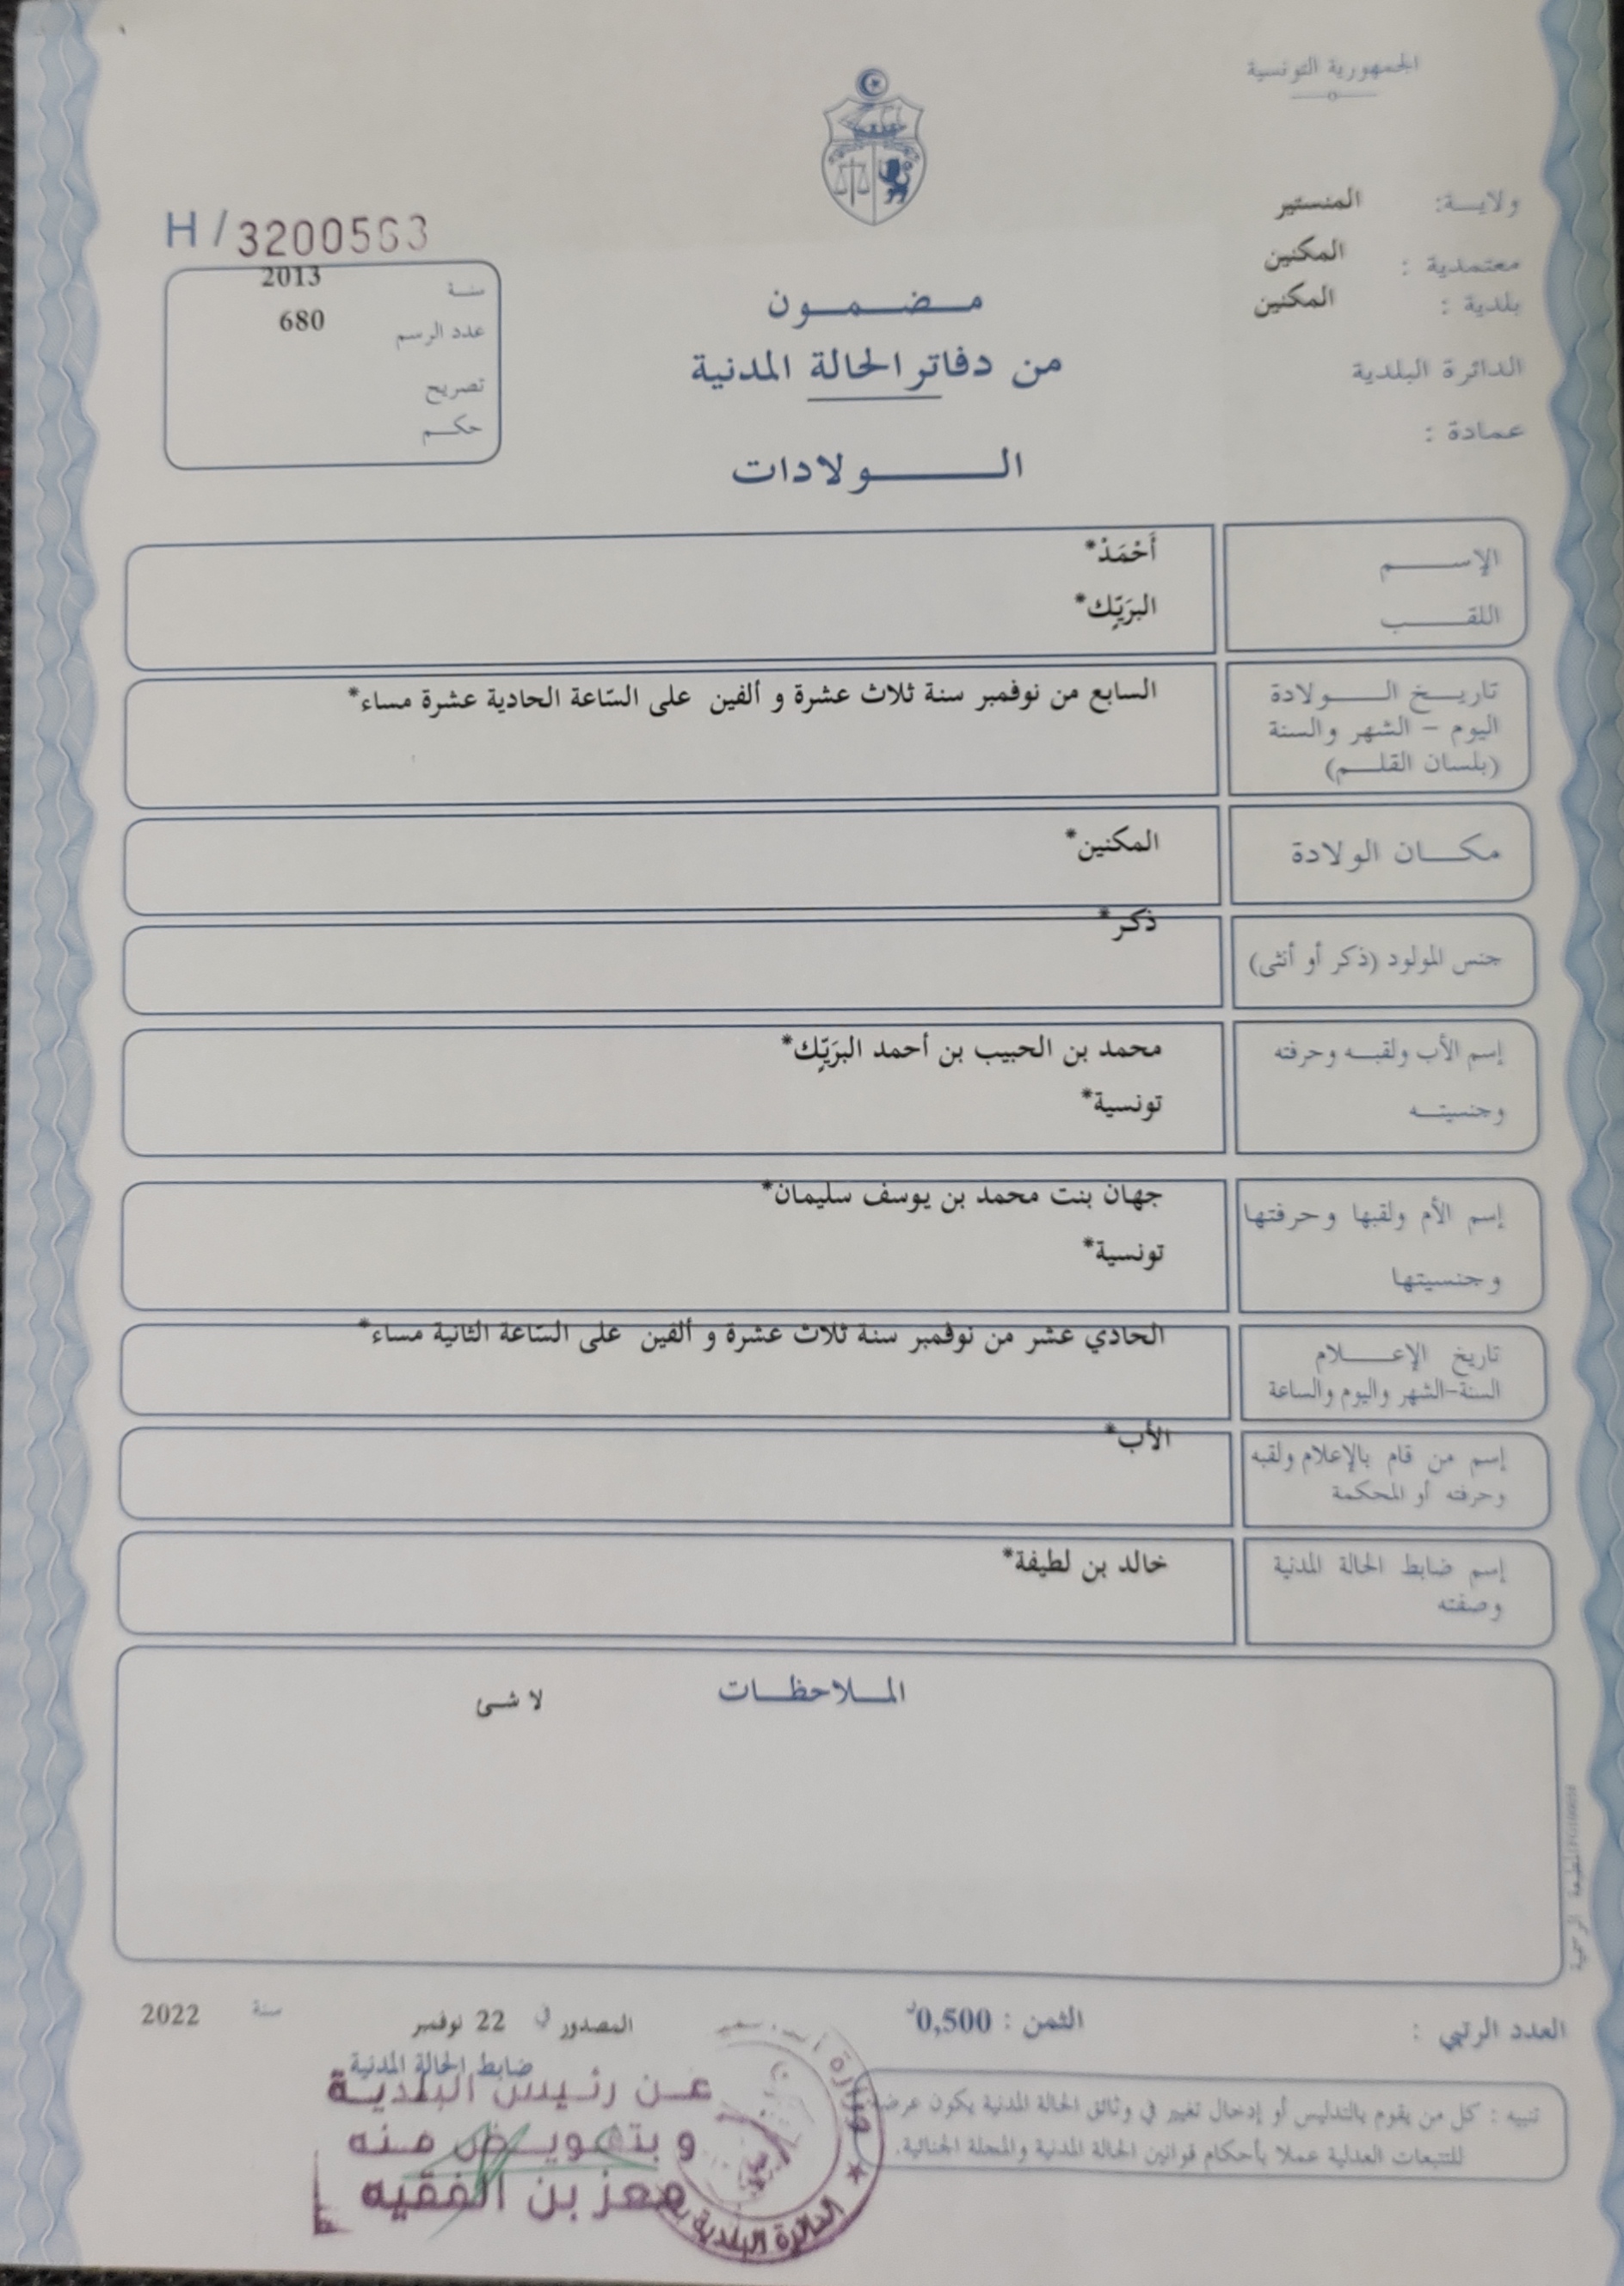 الجمهورية التونسية
ولايـــة: المنستير
معتمدية : المكنين
بلدية : المكنين
الدائرة البلدية
عمادة :
H / 3200563
سنـــة 2013
عدد الرسم 680
تصريح
حكـــم
مـــضـــمـــون
من دفاتر الحالة المدنية
الـــــولادات
الإســـــم أَحْمَدْ*
اللقـــــب البرَيِّك*
تاريـــخ الـــــولادة السابع من نوفمبر سنة ثلاث عشرة و ألفين على السّاعة الحادية عشرة مساء*
اليوم - الشهر والسنة
(بلسان القلـــم)
مكـــان الولادة المكنين*
جنس المولود (ذكر أو أنثى) ذكر*
إسم الأب ولقبـــه وحرفته محمد بن الحبيب بن أحمد البرَيِّك*
وجنسيتـــه تونسية*
إسم الأم ولقبها وحرفتها جهان بنت محمد بن يوسف سليمان*
وجنسيتها تونسية*
تاريخ الإعـــــلام الحادي عشر من نوفمبر سنة ثلاث عشرة و ألفين على السّاعة الثانية مساء*
السنة-الشهر واليوم والساعة
إسم من قام بالإعلام ولقبه الأب*
وحرفته أو المحكمة
إسم ضابط الحالة المدنية خالد بن لطيفة*
وصفته
المـــلاحظـــات لا شى
المطبعة الرسمية
العدد الرتبي :
الثمن : 0,500د
المصدور في 22 نوفمبر سنة 2022
ضابط الحالة المدنية
عـن رئـيـس البلديـة
و بتفويـض منـه
معز بن الفقيه
الدائرة البلدية
تنبيه : كل من يقوم بالتدليس أو إدخال تغيير في وثائق الحالة المدنية يكون عرضة
للتتبعات العدلية عملا بأحكام قوانين الحالة المدنية والمجلة الجنائية.